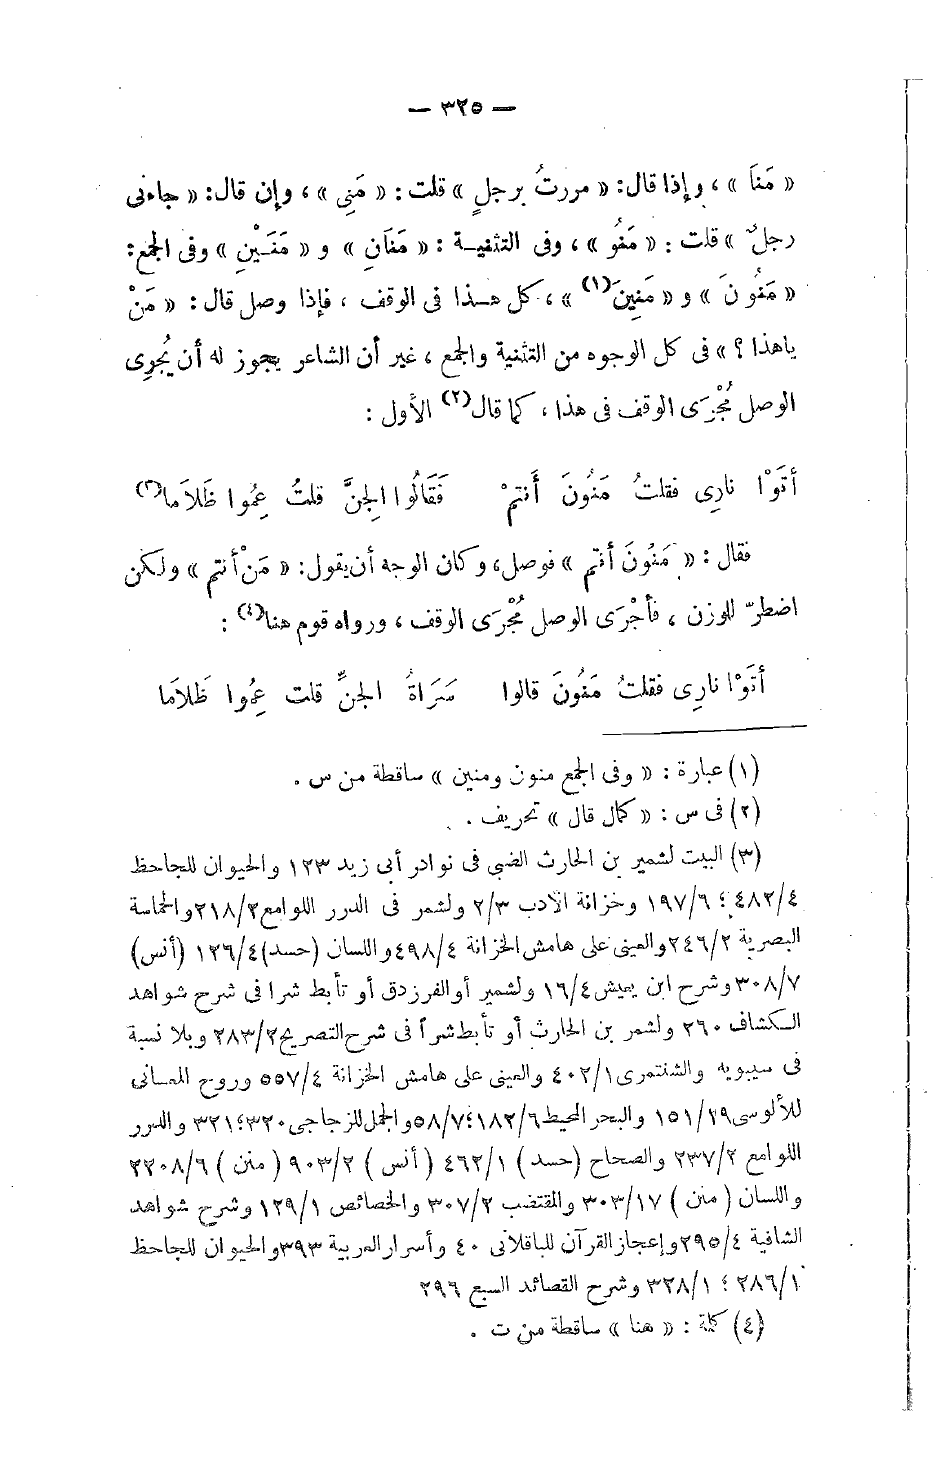 — ٣٢٥ —
« مَنَا » ، وإذا قال: « مررتُ برجلٍ » قلت : « مَنِى » ، وإن قال: « جاءنى
رجلٌ » قلت : « مَنُو » ، وفى التثنيـة : « مَنَانِ » و « مَنَـيْنِ » وفى الجمع:
« مَنُونَ » و « مَنِينَ(١) » ، كل هـذا فى الوقف ، فإذا وصل قال : « مَنْ
ياهذا ؟ » فى كل الوجوه من التثنية والجمع ، غير أن الشاعر يجوز له أن يُجرِى
الوصل مُجْرَى الوقف فى هذا ، كما قال(٢) الأول :
أتَوْا نارِى فقلتُ مَنُونَ أَنتمْ فَقَالُوا الجِنَّ قلتُ عِمُوا ظَلاَما(٣)
فقال : « مَنُونَ أنتم » فوصل، وكان الوجه أن يقول: « مَنْ أنتم » ولكن
اضطرّ للوزن ، فأجْرَى الوصل مُجْرَى الوقف ، ورواه قوم هنا(٤) :
أتَوْا نارِى فقلتُ مَنُونَ قالوا سَرَاةُ الجنِّ قلت عِمُوا ظَلاَما
(١) عبارة : « وفى الجمع منون ومنين » ساقطة من س .
(٢) فى س : « كمال قال » تحريف .
(٣) البيت لشمير بن الحارث الضبى فى نوادر أبى زيد ١٢٣ والحيوان للجاحظ
٤٨٢/٤ ؛ ١٩٧/٦ وخزانة الأدب ٣/٢ ولشمر فى الدرر اللوامع ٢١٨/٢ والحماسة
البصرية ٢٤٦/٢ والعينى على هامش الخزانة ٤٩٨/٤ واللسان (حسد) ١٢٦/٤ (أنس)
٣٠٨/٧ وشرح ابن يعيش ١٦/٤ ولشمير أو الفرزدق أو تأبط شرا فى شرح شواهد
الـكشاف ٢٦٠ ولشمر بن الحارث أو تأبط شراً فى شرح التصريح ٢٨٣/٢ وبلا نسبة
فى سيبويه والشنتمرى ٤٠٢/١ والعينى على هامش الخزانة ٥٥٧/٤ وروح المعـانى
للألوسى ١٥١/٢٩ والبحر المحيط ١٨٢/٦؛ ٥٨/٧ والجمل للزجاجى ٣٢٠؛ ٣٢١ والدرر
اللوامع ٢٣٧/٢ والصحاح (حسد) ٤٦٢/١ ( أنس ) ٩٠٣/٢ ( منن ) ٢٢٠٨/٦
واللسان ( منن ) ٣٠٣/١٧ والمقتضب ٣٠٧/٢ والخصائص ١٢٩/١ وشرح شواهد
الشافية ٢٩٥/٤ وإعجاز القرآن للباقلانى ٤٠ وأسرار العربية ٣٩٣ والحيوان للجاحظ
٢٨٦/١ ؛ ٣٢٨/١ وشرح القصائد السبع ٢٩٦
(٤) كلمة : « هنا » ساقطة من ت .